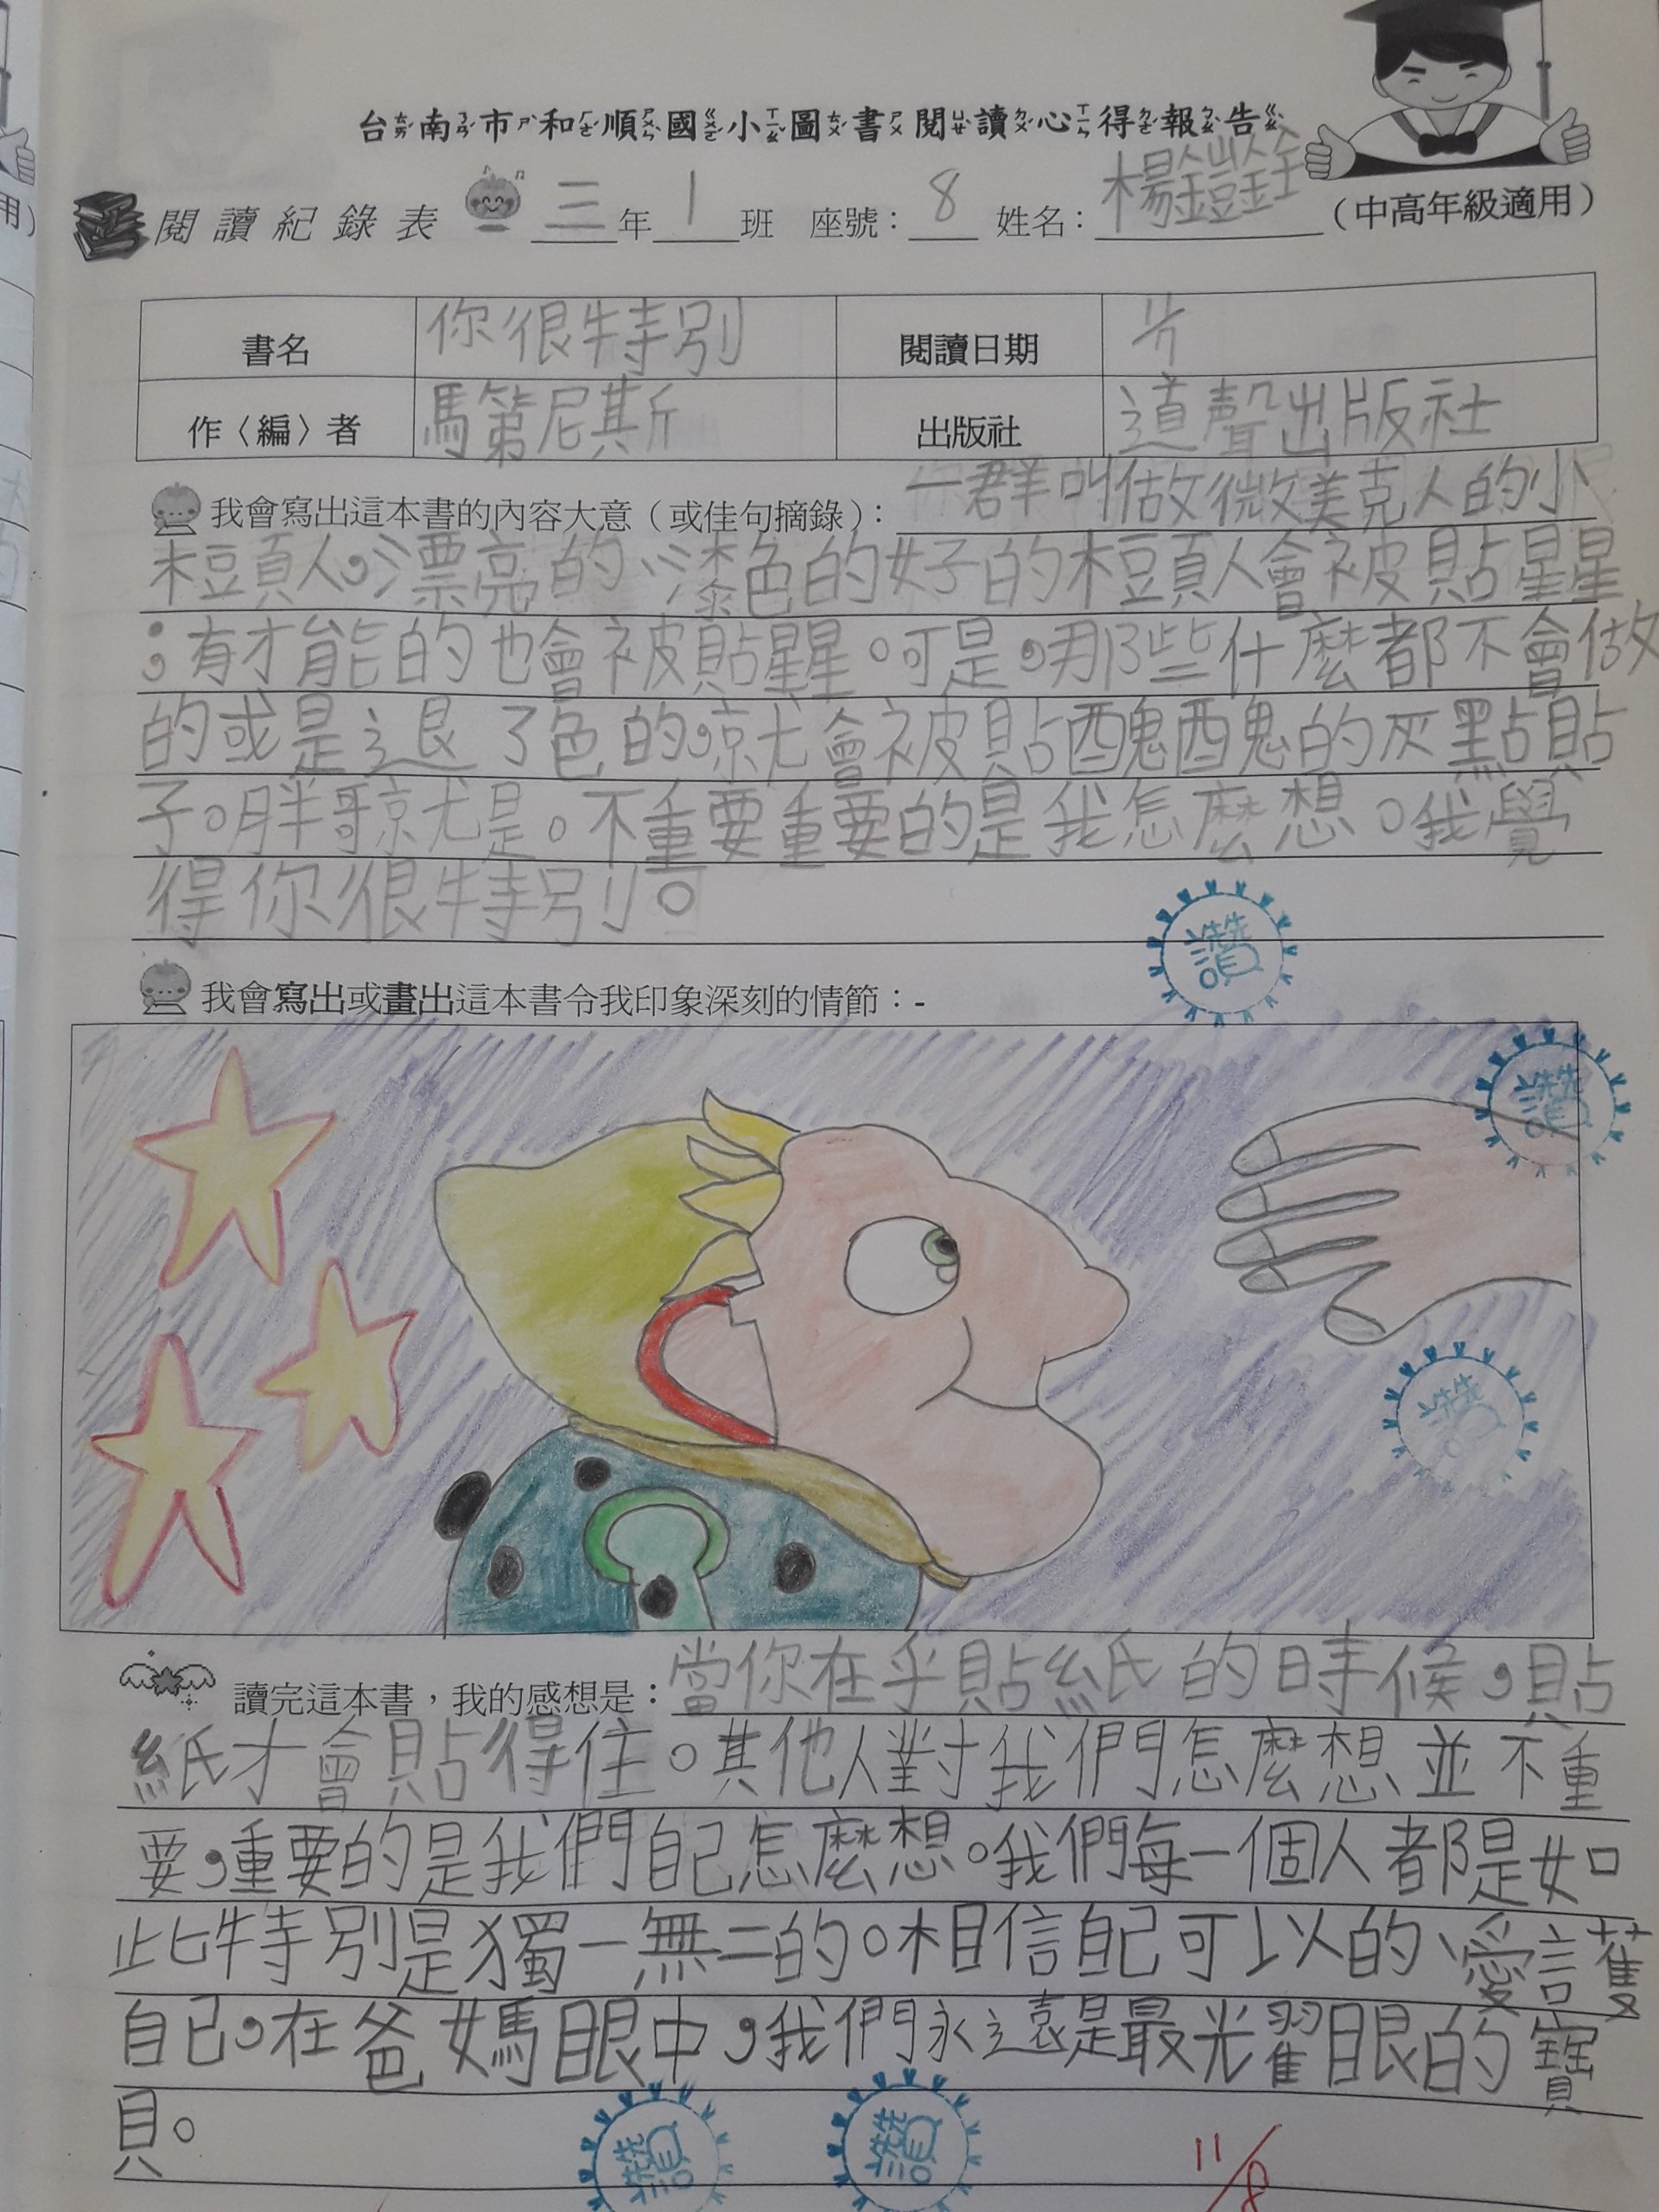 台南市和順國小圖書閱讀心得報告
閱讀紀錄表 三年1班 座號：8 姓名：楊鎧銓 （中高年級適用）
書名 你很特別 閱讀日期
作〈編〉者 馬第尼斯 出版社 道聲出版社
我會寫出這本書的內容大意（或佳句摘錄）：一群叫做微美克人的小
木頭人，漂亮的、漆色的好的木頭人會被貼星星
；有才能的也會被貼星星。可是，那些什麼都不會做
的或是退了色的，就會被貼醜醜的灰點貼
子。胖哥就是。不重要重要的是我怎麼想。我覺
得你很特別。
讚
我會寫出或畫出這本書令我印象深刻的情節：-
讚
讚
讀完這本書，我的感想是：當你在乎貼紙的時候，貼
紙才會貼得住。其他人對我們怎麼想並不重
要，重要的是我們自己怎麼想。我們每一個人都是如
此特別是獨一無二的。相信自己可以的、愛護
自己，在爸媽眼中，我們永遠是最光耀眼的寶
貝。
讚 讚
11/8